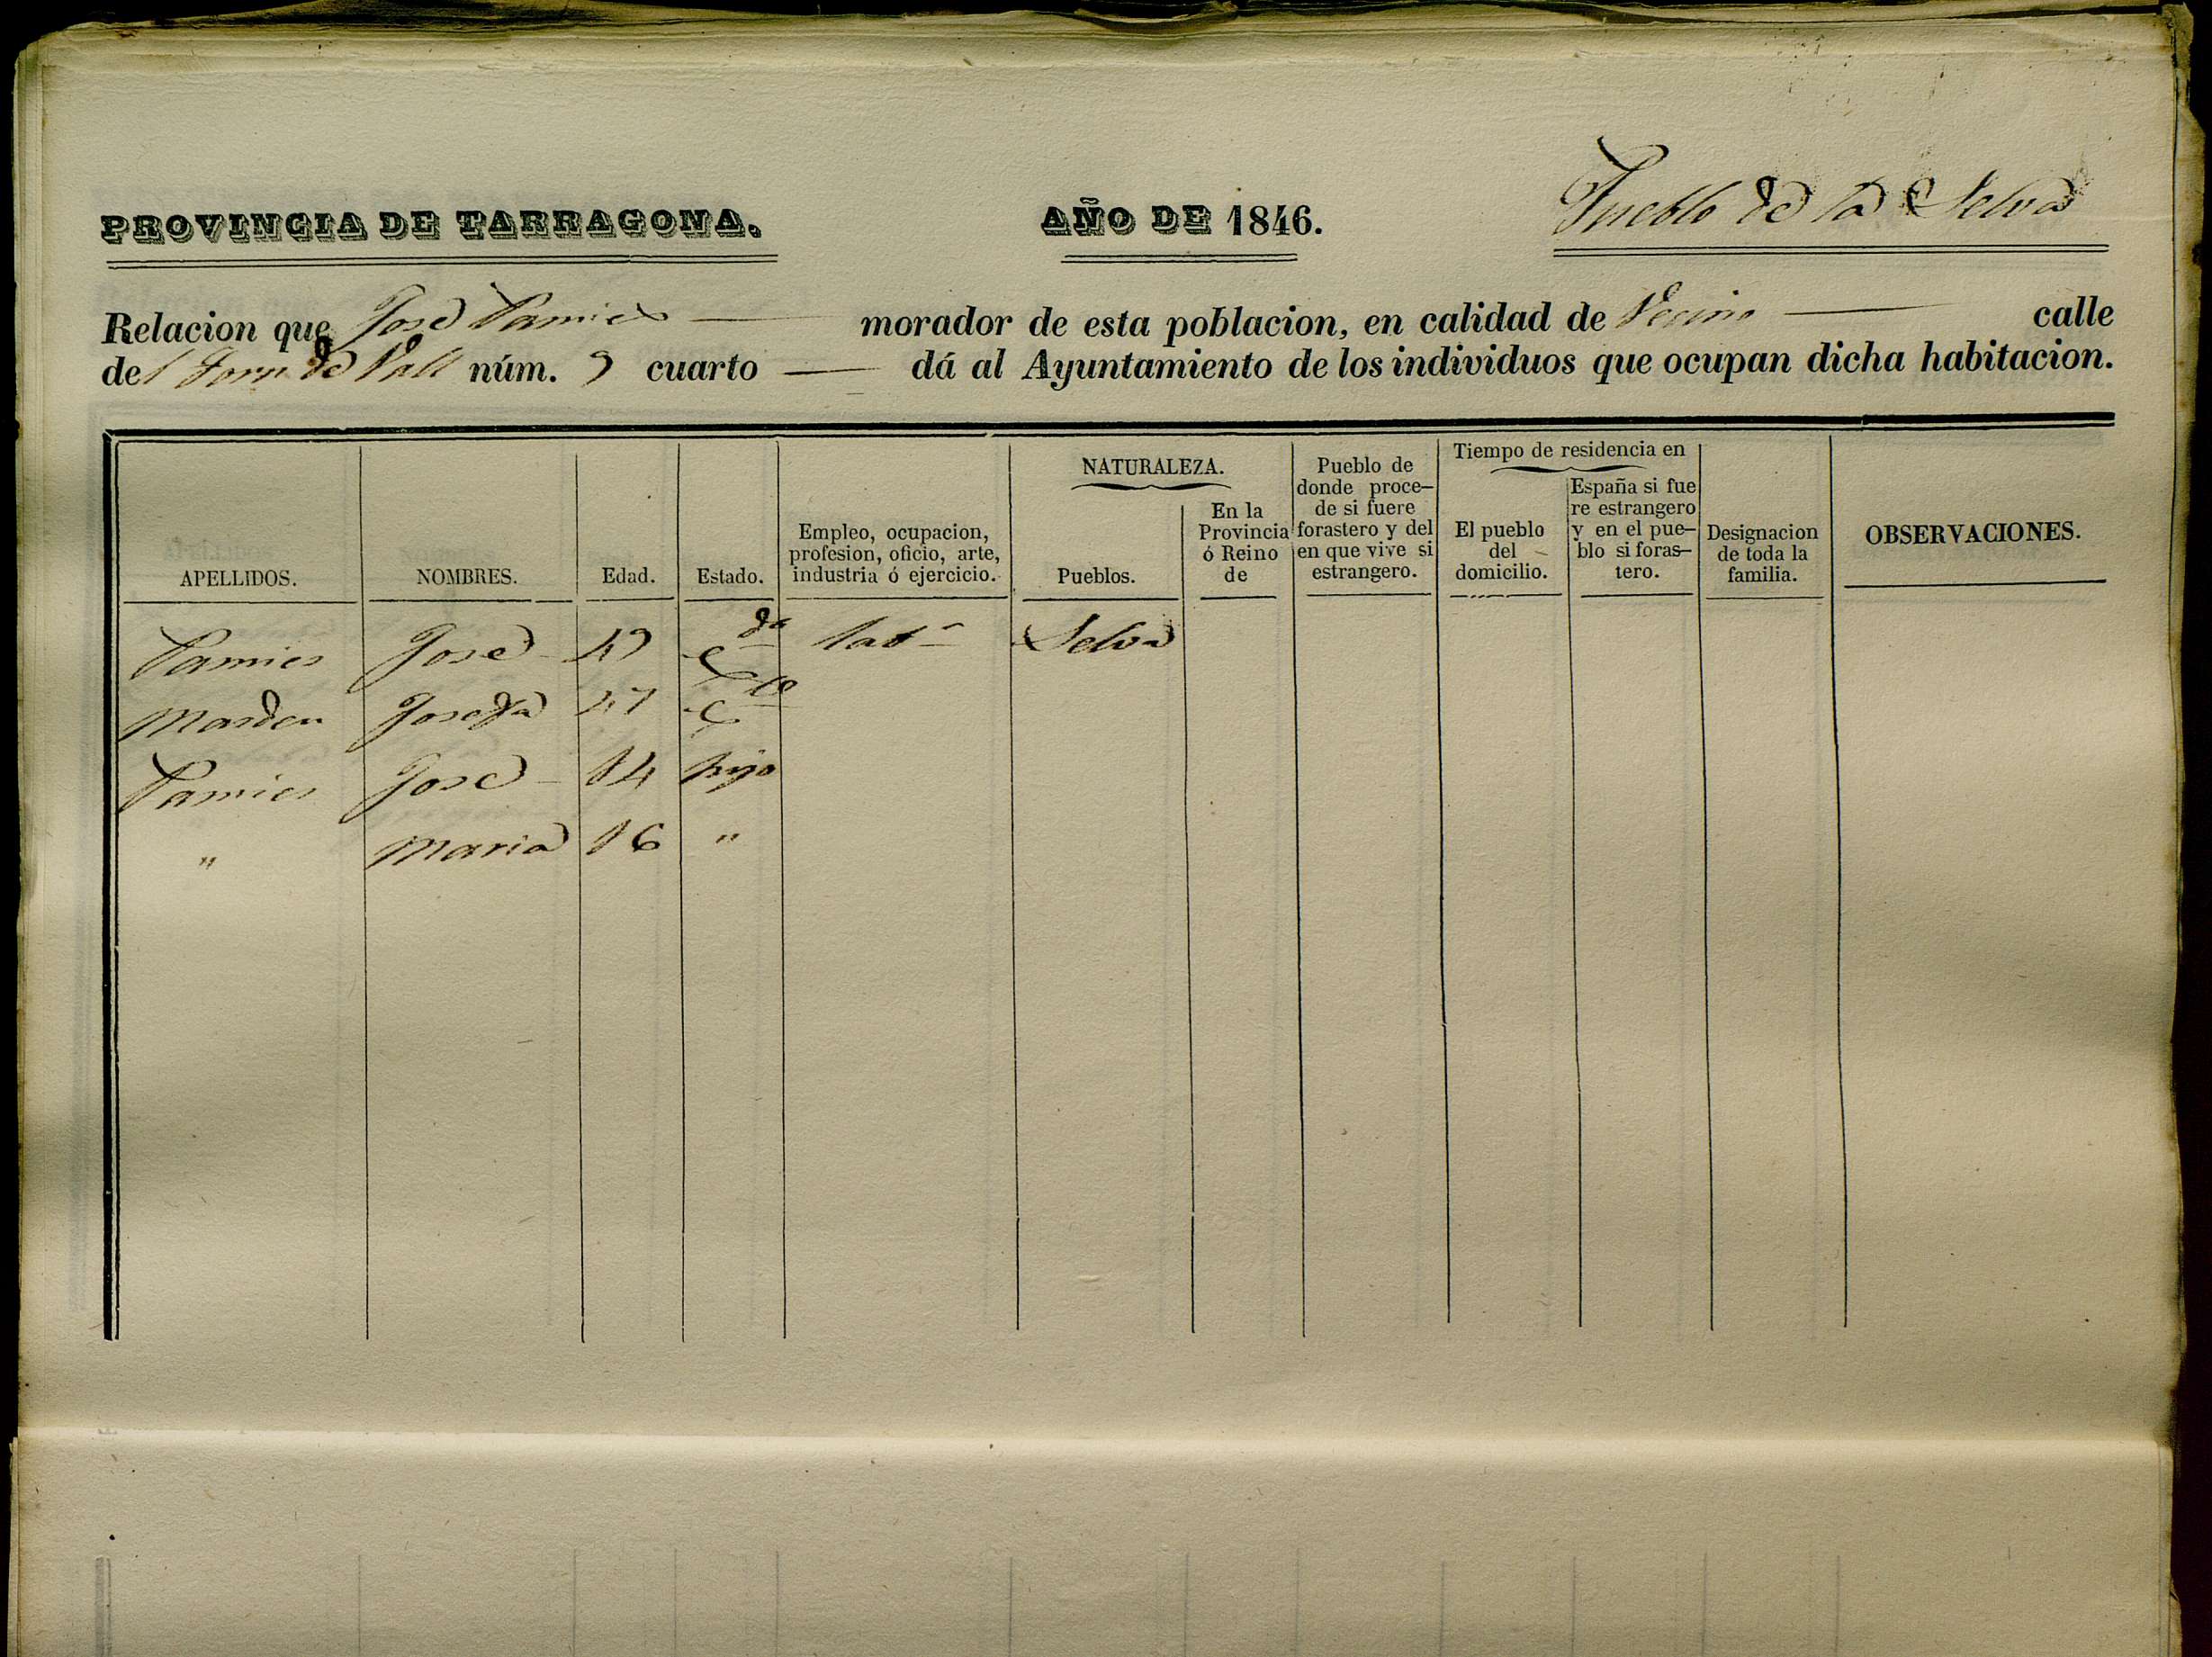 PROVINCIA DE TARRAGONA. AÑO DE 1846. Pueblo de la Selva
Relacion que José Pamies morador de esta poblacion, en calidad de Vecino calle
del Forn de Vall núm. 9 cuarto dá al Ayuntamiento de los individuos que ocupan dicha habitacion.
APELLIDOS. NOMBRES. Edad. Estado. Empleo, ocupacion, profesion, oficio, arte, industria ó ejercicio. NATURALEZA. Pueblos. En la Provincia ó Reino de Pueblo de donde proce-de si fuere forastero y del en que vive si estrangero. Tiempo de residencia en El pueblo del domicilio. España si fue re estrangero y en el pue-blo si foras-tero. Designacion de toda la familia. OBSERVACIONES.
Pamies José C Lab Selva
Josefa C
Pamies José 14 hijo
" Maria 16 "